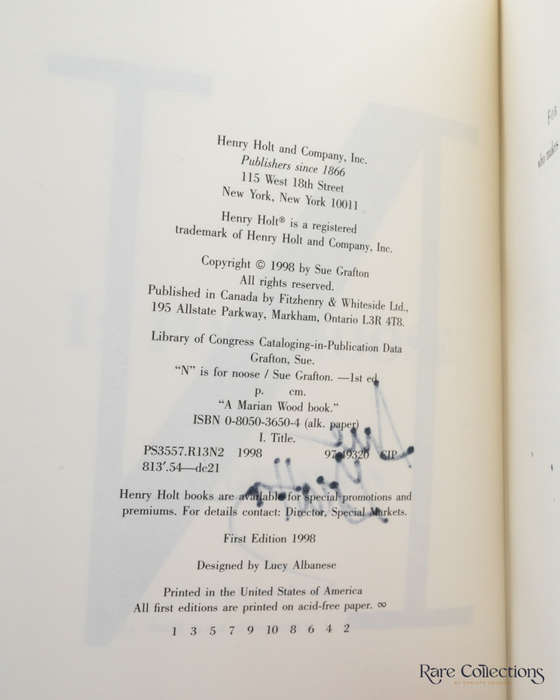 Henry Holt and Company, Inc.
Publishers since 1866
115 West 18th Street
New York, New York 10011
Henry Holt® is a registered
trademark of Henry Holt and Company, Inc.
Copyright © 1998 by Sue Grafton
All rights reserved.
Published in Canada by Fitzhenry & Whiteside Ltd.,
195 Allstate Parkway, Markham, Ontario L3R 4T8.
Library of Congress Cataloging-in-Publication Data
Grafton, Sue.
“N” is for noose / Sue Grafton. —1st ed.
p. cm.
“A Marian Wood book.”
ISBN 0-8050-3650-4 (alk. paper)
I. Title.
PS3557.R13N2 1998 CIP
813′.54—dc21
Henry Holt books are available for special promotions and
premiums. For details contact: Director, Special Markets.
First Edition 1998
Designed by Lucy Albanese
Printed in the United States of America
All first editions are printed on acid-free paper. ∞
1 3 5 7 9 10 8 6 4 2
who makes
Rare Collections